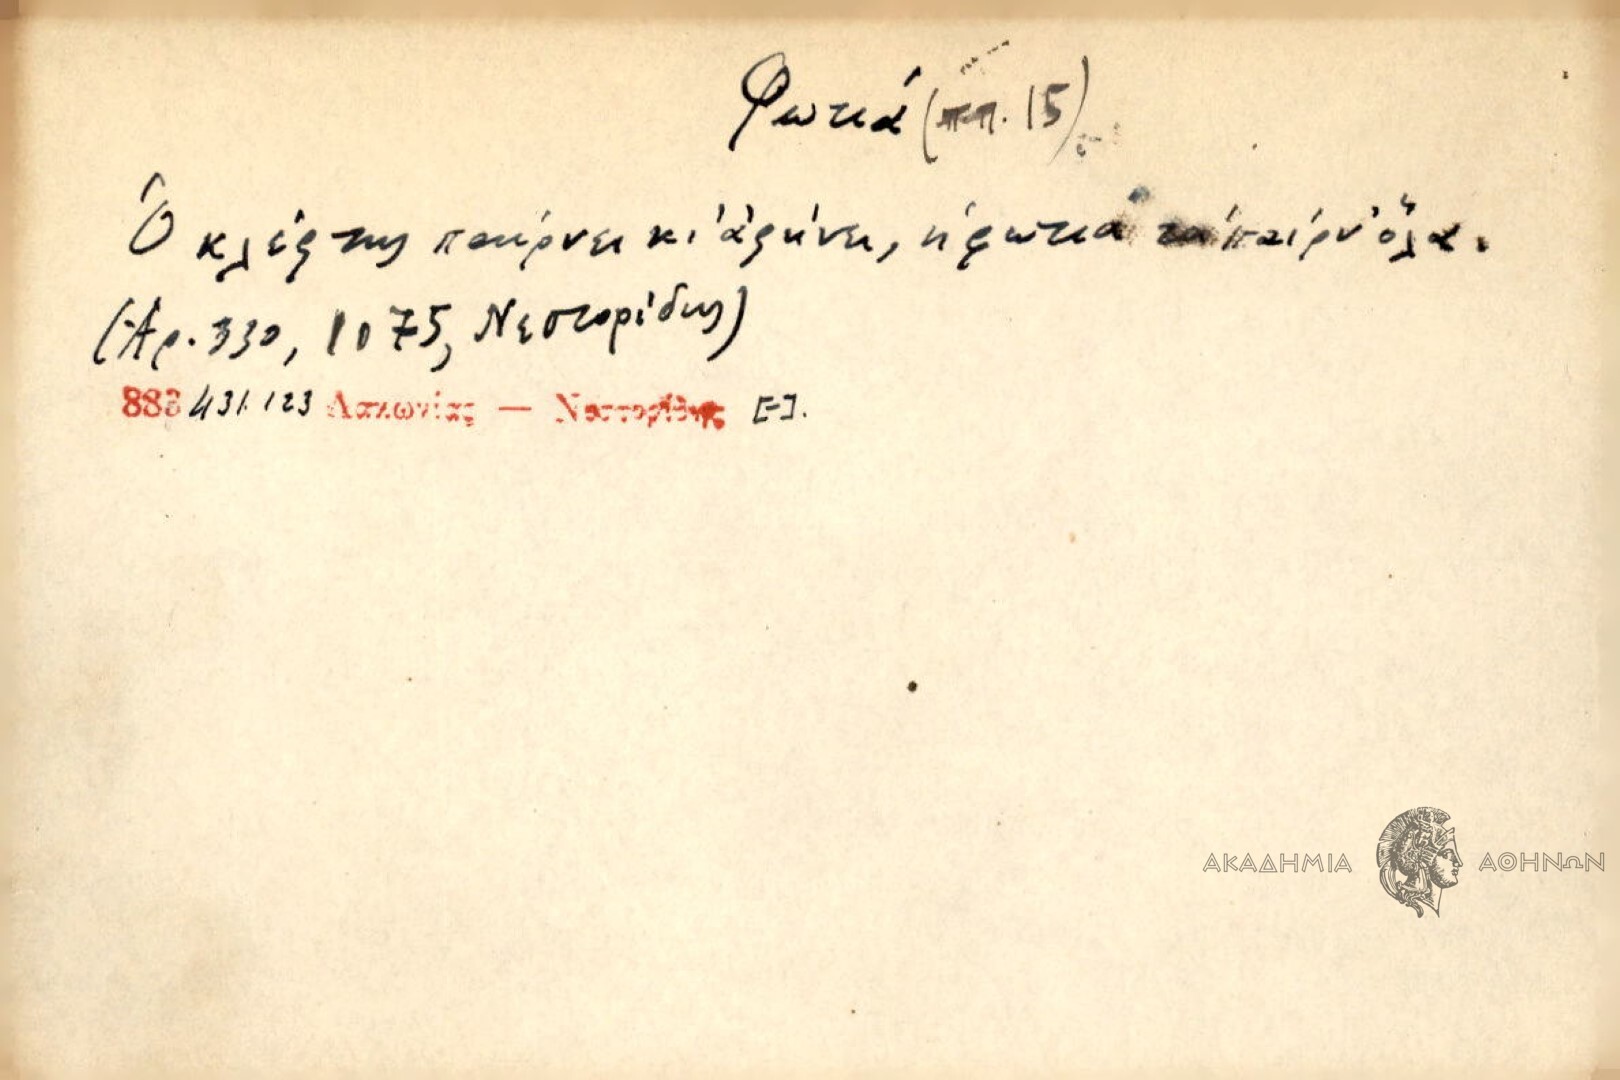 Φωτιά (ππ. 15)
Ὁ κλέφτης παίρνει κι' ἀφήνει, ἡ φωτιὰ τὰ παίρν' ὅλα.
(Ἀρ. 330, 1075, Νεστορίδης)
883 431.123 Λακωνίας — Νεστορίδης [-].
ΑΚΑΔΗΜΙΑ ΑΘΗΝΩΝ